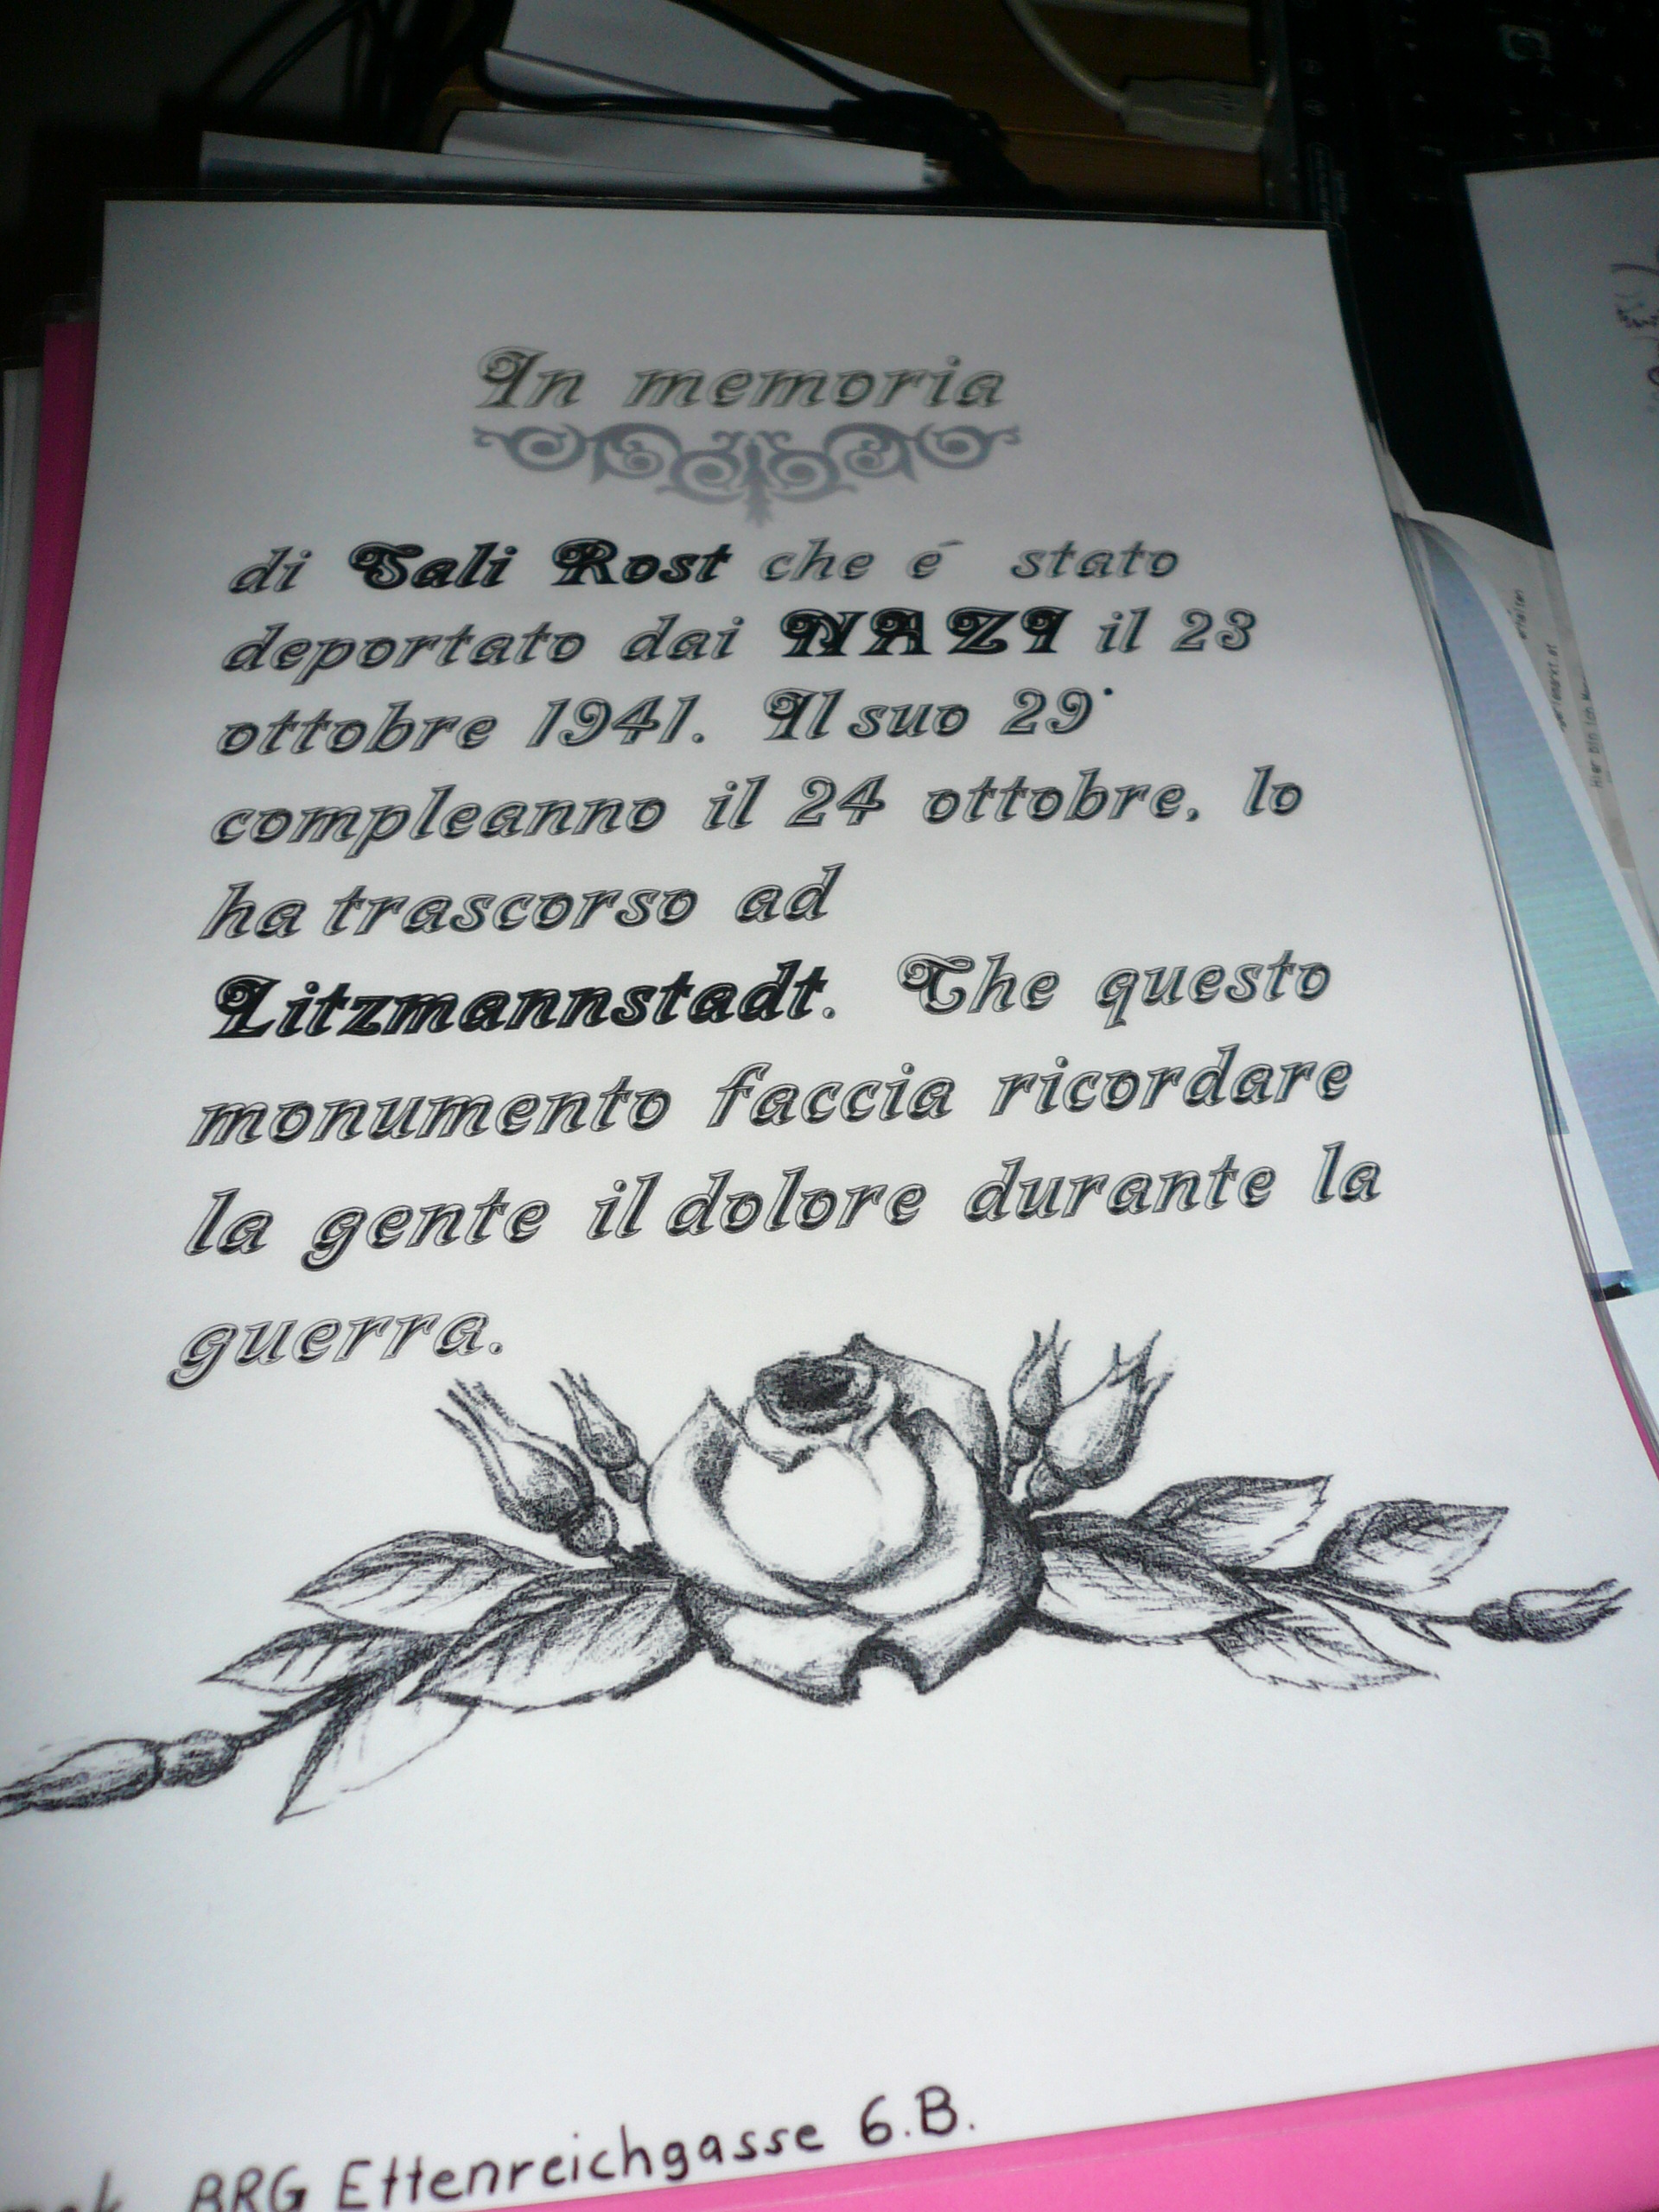 In memoria
di Sali Rost che é stato
deportato dai NAZI il 23
ottobre 1941. Il suo 29°
compleanno il 24 ottobre, lo
ha trascorso ad
Litzmannstadt. Che questo
monumento faccia ricordare
la gente il dolore durante la
guerra.
BRG Ettenreichgasse 6.B.
Hier bin ich